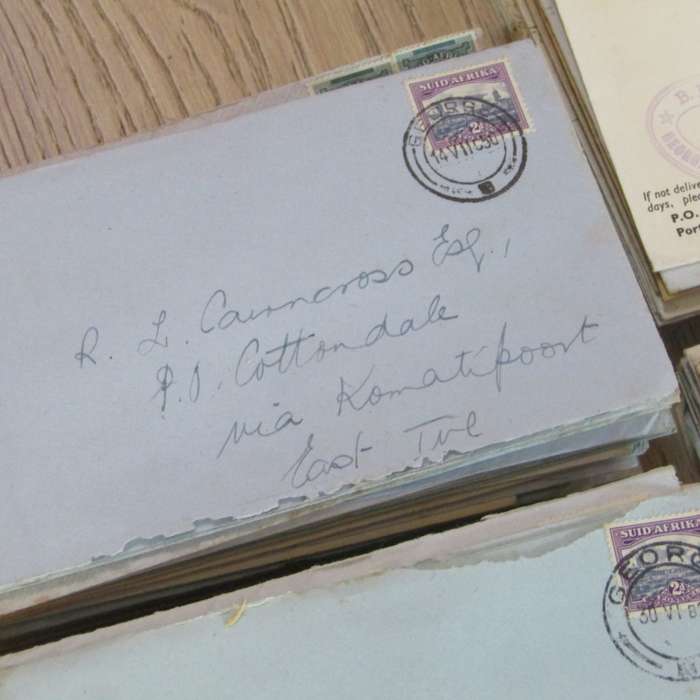 SUID-AFRIKA
2d
GEORGE
14 VII C50
R. L. Cairncross Esq.,
P.O. Cottondale
via Komatipoort
East Tvl
If not delive
days, plea
P.O.
Port
SUID-AFRIKA
2d
GEORG
30 VI